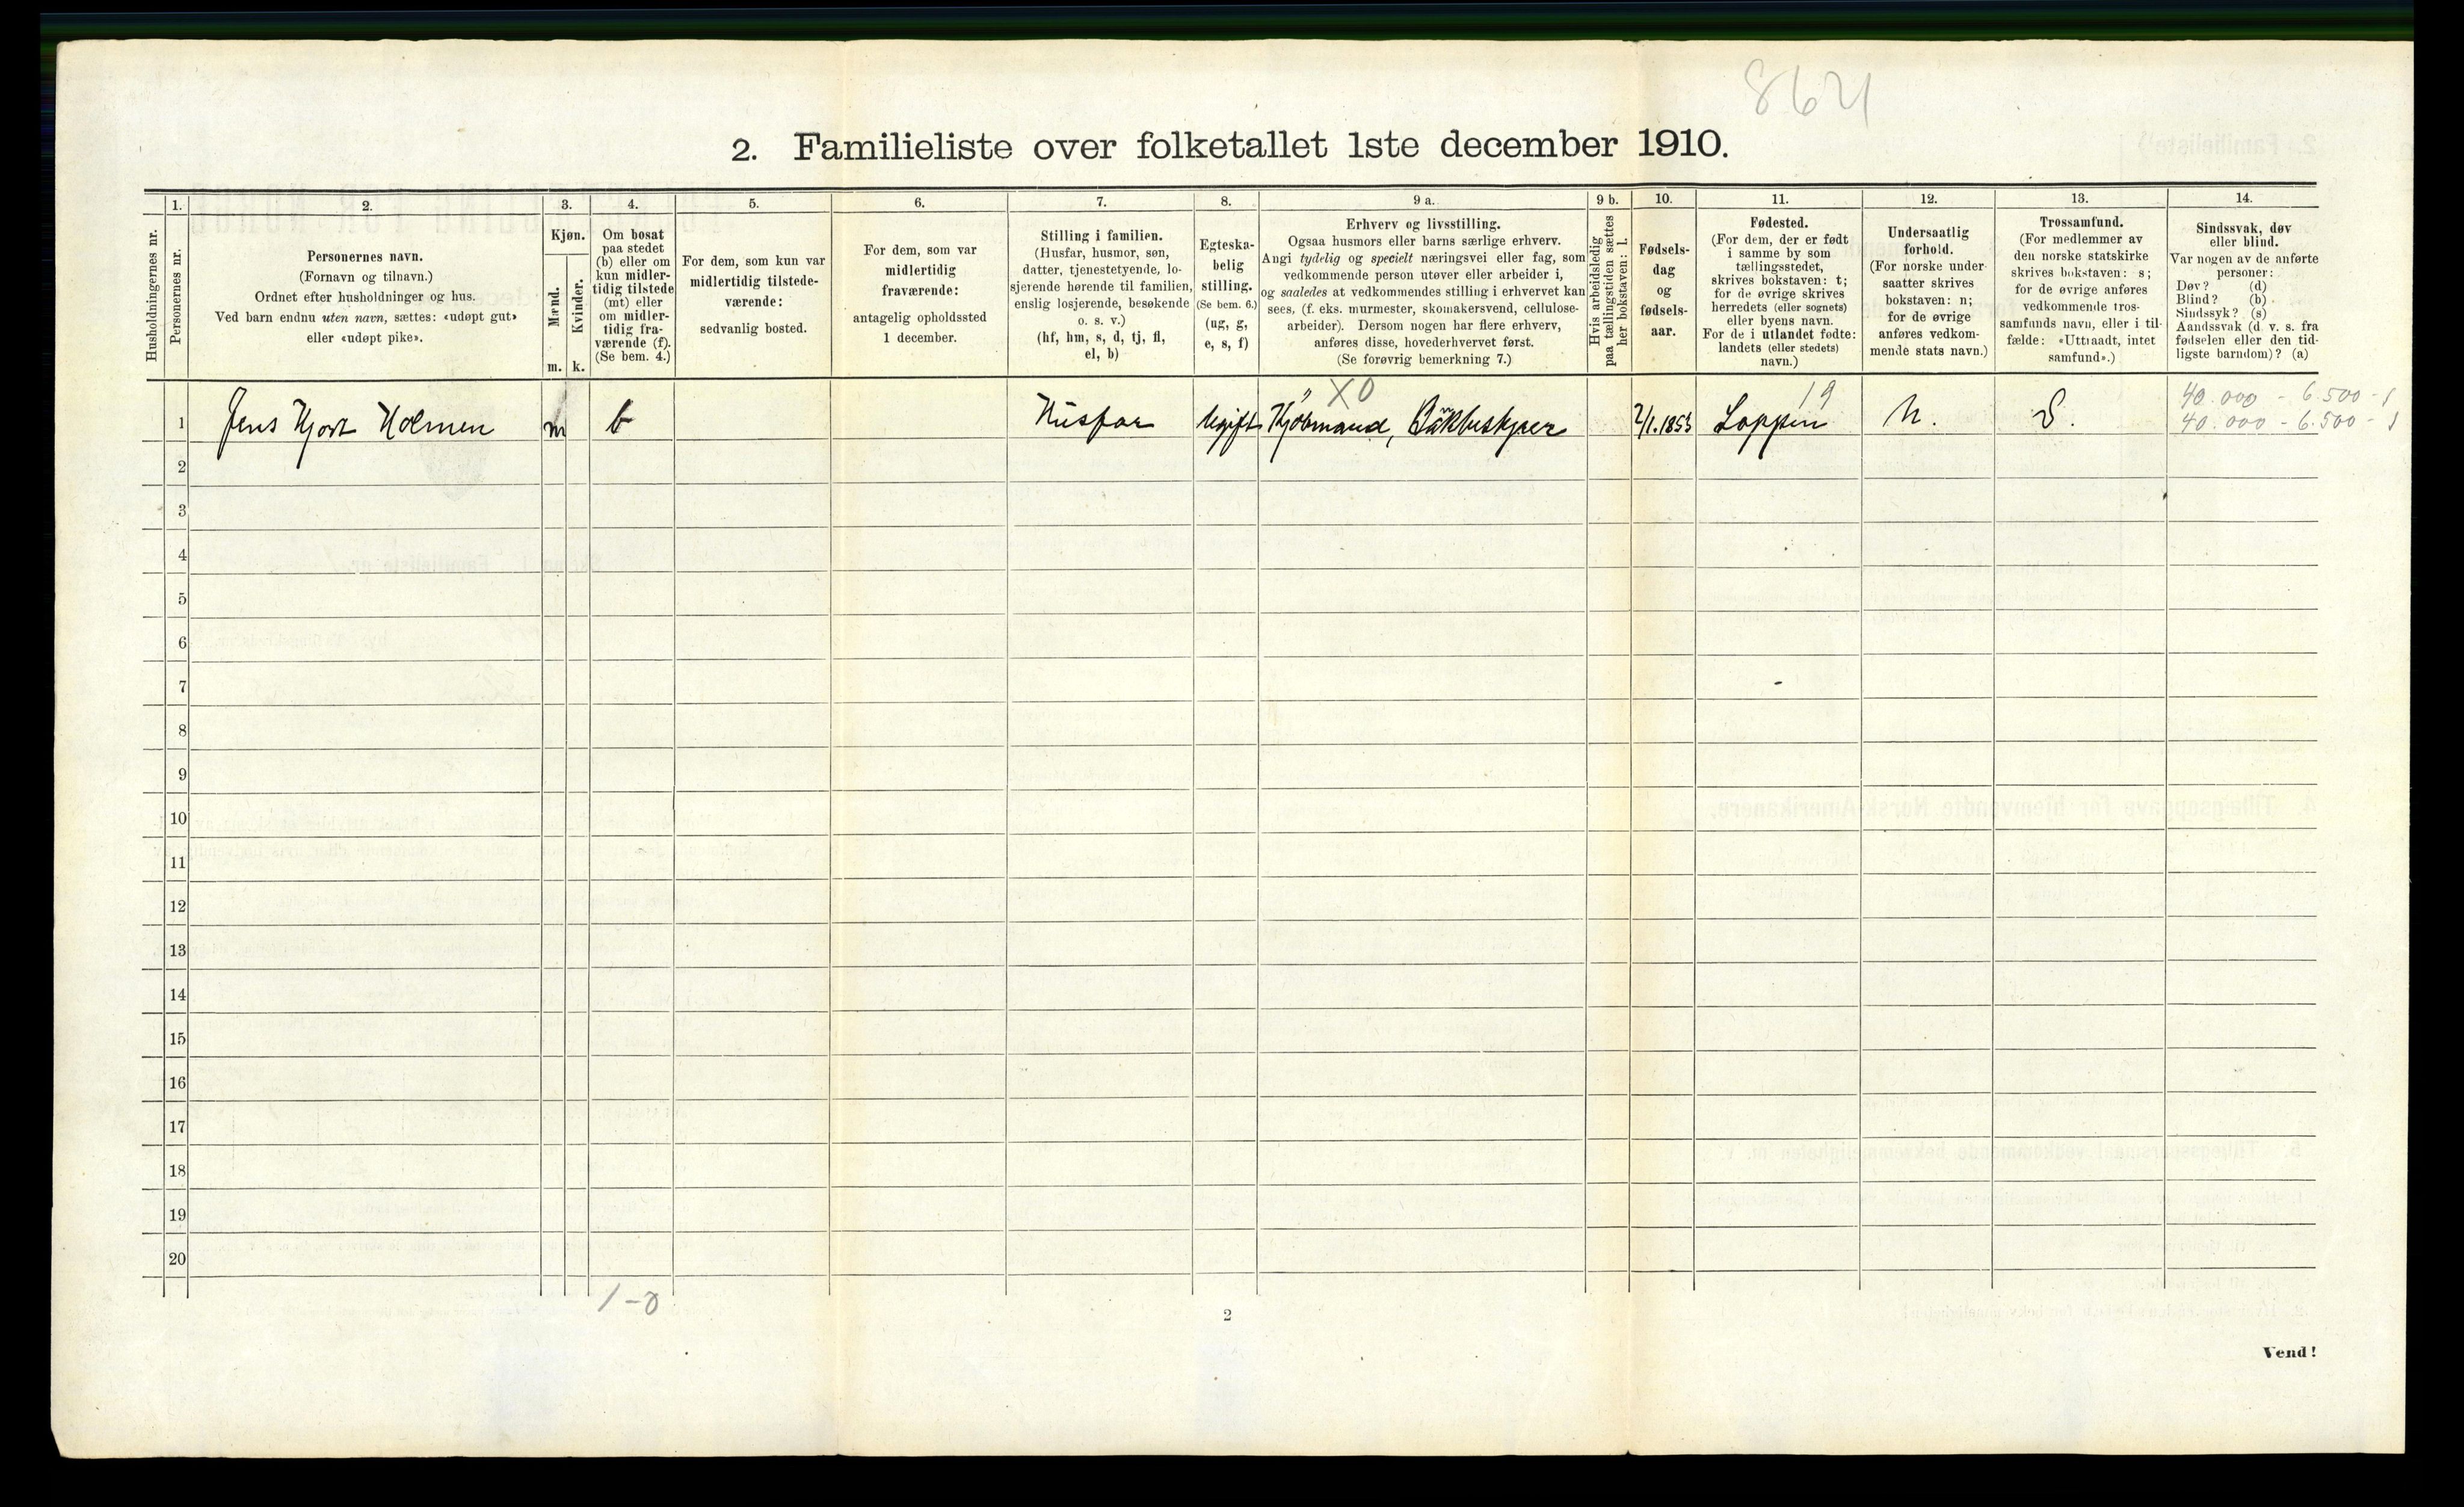 8621
2. Familieliste over folketallet 1ste december 1910.
1. 2. 3. 4. 5. 6. 7. 8. 9 a. 9 b. 10. 11. 12. 13. 14.
Husholdningernes nr.
Personernes nr.
Personernes navn.
(Fornavn og tilnavn.)
Ordnet efter husholdninger og hus.
Ved barn endnu uten navn, sættes: «udøpt gut»
eller «udøpt pike».
Kjøn.
Mænd.
Kvinder.
m. k.
Om bosat
paa stedet
(b) eller om
kun midler-
tidig tilstede
(mt) eller
om midler-
tidig fra-
værende (f).
(Se bem. 4.)
For dem, som kun var
midlertidig tilstede-
værende:
sedvanlig bosted.
For dem, som var
midlertidig
fraværende:
antagelig opholdssted
1 december.
Stilling i familien.
(Husfar, husmor, søn,
datter, tjenestetyende, lo-
sjerende hørende til familien,
enslig losjerende, besøkende
o. s. v.)
(hf, hm, s, d, tj, fl,
el, b)
Egteska-
belig
stilling.
(Se bem. 6.)
(ug, g,
e, s, f)
Erhverv og livsstilling.
Ogsaa husmors eller barns særlige erhverv.
Angi tydelig og specielt næringsvei eller fag, som
vedkommende person utøver eller arbeider i,
og saaledes at vedkommendes stilling i erhvervet kan
sees, (f. eks. murmester, skomakersvend, cellulose-
arbeider). Dersom nogen har flere erhverv,
anføres disse, hovederhvervet først.
(Se forøvrig bemerkning 7.)
Hvis arbeidsledig
paa tællingstiden sættes
her bokstaven: l.
Fødsels-
dag
og
fødsels-
aar.
Fødested.
(For dem, der er født
i samme by som
tællingsstedet,
skrives bokstaven: t;
for de øvrige skrives
herredets (eller sognets)
eller byens navn.
For de i utlandet fødte:
landets (eller stedets)
navn.)
Undersaatlig
forhold.
(For norske under-
saatter skrives
bokstaven: n;
for de øvrige
anføres vedkom-
mende stats navn.)
Trossamfund.
(For medlemmer av
den norske statskirke
skrives bokstaven: s;
for de øvrige anføres
vedkommende tros-
samfunds navn, eller i til-
fælde: «Uttraadt, intet
samfund».)
Sindssvak, døv
eller blind.
Var nogen av de anførte
personer:
Døv? (d)
Blind? (b)
Sindssyk? (s)
Aandssvak (d. v. s. fra
fødselen eller den tid-
ligste barndom)? (a)
X0 19 40.000 - 6.500 - 1
1 Jens Hjort Holmen m b Husfar Ugift Kjøbmand, 2/1.1853 Loppen N. S. 40.000 - 6.500 - 1
2
3
4
5
6
7
8
9
10
11
12
13
14
15
16
17
18
19
20
1-0
2
Vend!